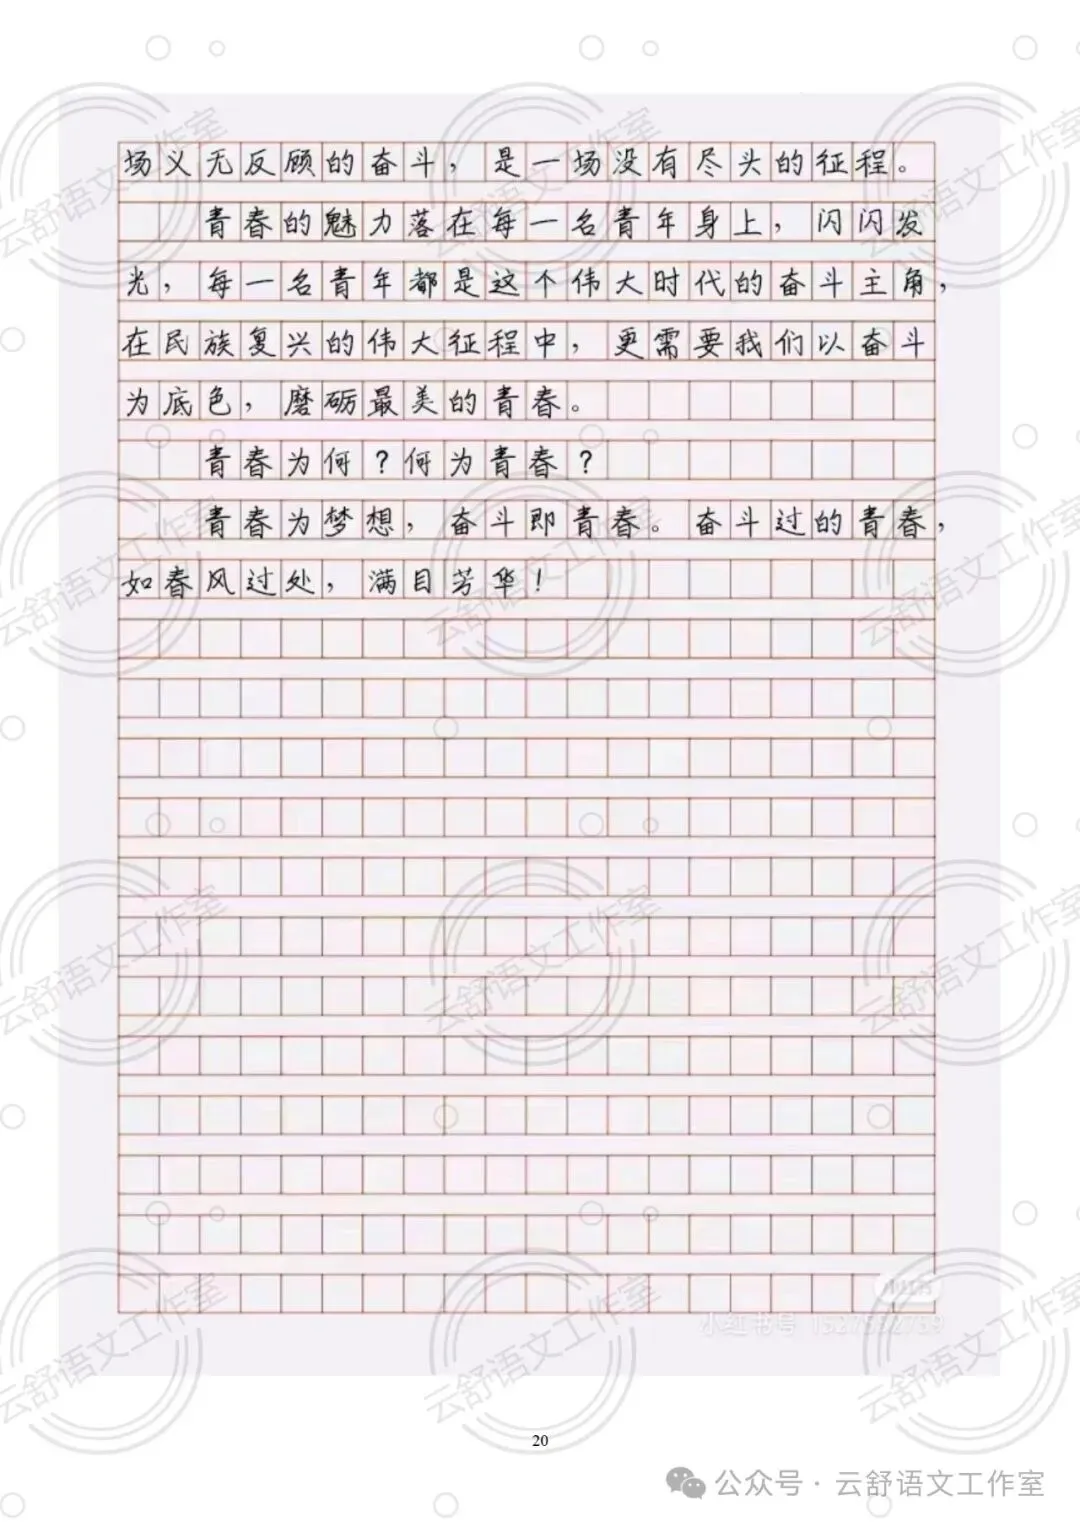 场义无反顾的奋斗，是一场没有尽头的征程。
青春的魅力落在每一名青年身上，闪闪发
光，每一名青年都是这个伟大时代的奋斗主角，
在民族复兴的伟大征程中，更需要我们以奋斗
为底色，磨砺最美的青春。
青春为何？何为青春？
青春为梦想，奋斗即青春。奋斗过的青春，
如春风过处，满目芳华！
小红书
小红书号
20
公众号·云舒语文工作室
云舒语文工作室